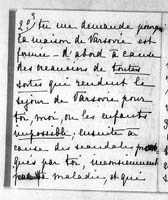 22 3 tu me demande pourquoi
la maison de Varsovie est
fermée - d'abord à cause
des créanciers de toutes
sortes qui rendent le
séjour de Varsovie pour
toi, moi, ou les enfants
impossible; ensuite à
cause des scandales
qués par toi,
maladie, et qui